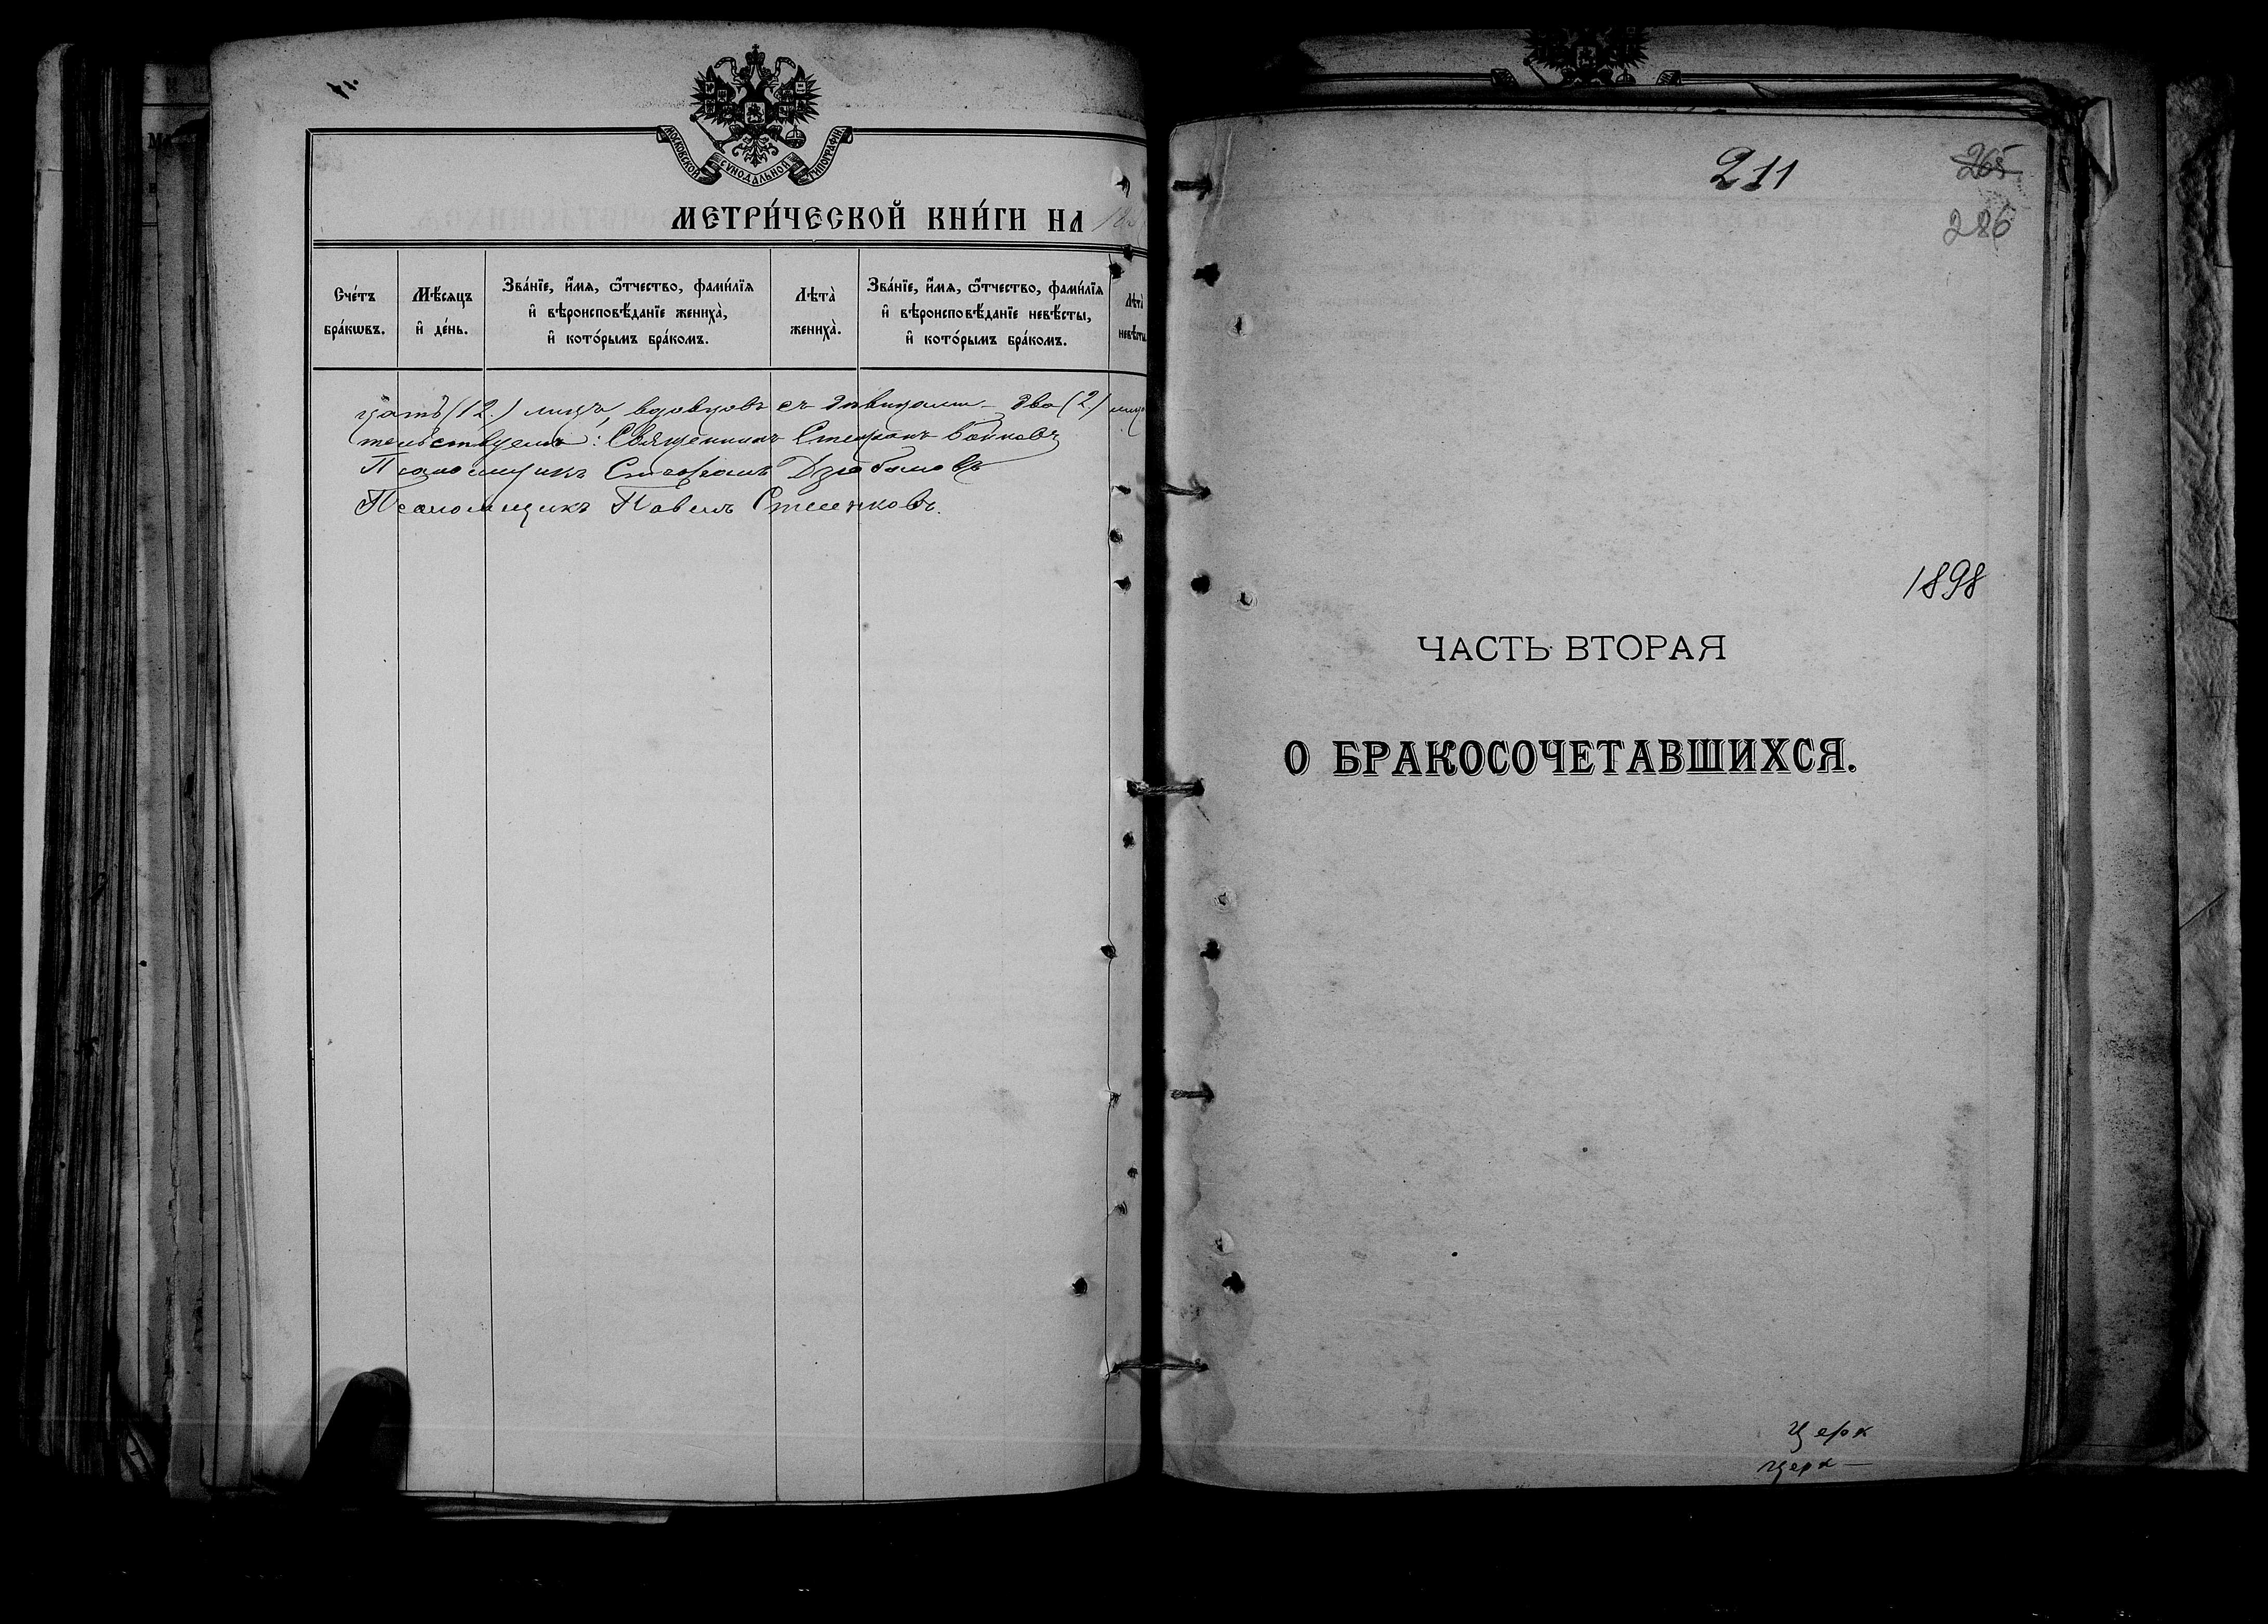 МОСКОВСКОЙ СУНОДАЛЬНОЙ ТИПОГРАФІИ
МЕТРИ́ЧЕСКОЙ КНИ́ГИ НА
Сче́тъ бра́кωвъ.
Мѣ́сяцъ и҆ де́нь.
Зва́нїе, и҆́мѧ, ѻ҆́тчество, фами́лїѧ и҆ вѣроисповѣ́данїе жениха̀, и҆ кото́рымъ бра́комъ.
Лѣта̀ жениха̀.
Зва́нїе, и҆́мѧ, ѻ҆́тчество, фами́лїѧ и҆ вѣроисповѣ́данїе невѣ́сты, и҆ кото́рымъ бра́комъ.
Лѣта̀ невѣ́сты
цать (12.) лицъ, вдовцовъ съ дѣвицами – два (2.) лиц
тельствуемъ: Священникъ Стефанъ Бойковъ
Псаломщикъ Стефанъ
Псаломщикъ Павелъ
211
265
286
1898
ЧАСТЬ ВТОРАЯ
О БРАКОСОЧЕТАВШИХСЯ.
Церк
Церк –